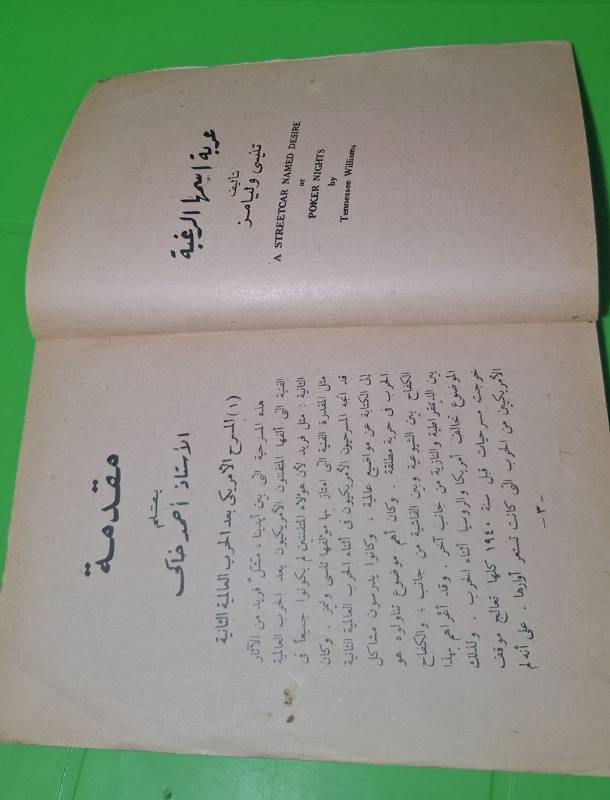 عربة اسمها الرغبة
تأليف
تنيسى وليامز
A STREETCAR NAMED DESIRE
or
POKER NIGHTS
by
Tennessee Williams
مقدمة
بقلم
الأستاذ أحمد خاكى
(١) المسرح الأمريكى بعد الحرب العالمية الثانية
هذه المسرحية التى بين أيدينا ، مثَل فريد من الآثار
الفنية التى ألفها المفتنون الأمريكيون بعد الحرب العالمية
الثانية : مثل فريد لأن هؤلاء المفتنين لم يكونوا جميعاً فى
مثل المقدرة الفنية التى امتاز بها مؤلفها تنسى وليمز . وكان
قد اتجه المسرحيون الأمريكيون فى أثناء الحرب العالمية الثانية
إلى الكتابة عن مواضيع عالمية ، وكانوا يدرسون مشاكل
الحرب فى حرية مطلقة . وكان أهم موضوع تناولوه هو
الكفاح بين الشيوعية وبين الفاشية من جانب ؛ والكفاح
بين الديمقراطية والنازية من جانب آخر . وقد أغراهم بهذا
الموضوع تحالف أمريكا والروسيا أثناء الحرب . ولذلك
خرجت مسرحيات قبل سنة ١٩٤٠ كلها تعالج موقف
الأمريكيين من الحرب التى كانت تستعر أوارها . على أنه لم
- ٣ -